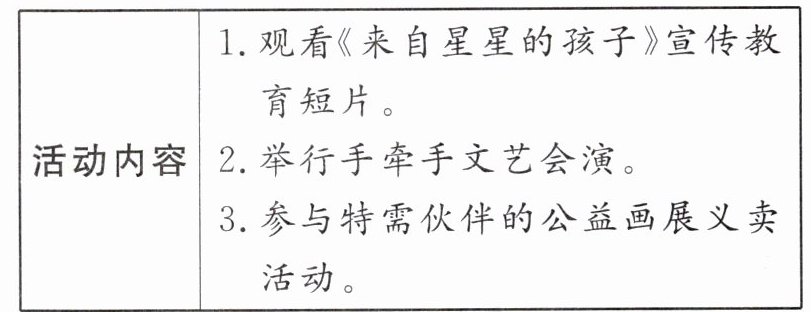 活动内容
1. 观看《来自星星的孩子》宣传教
育短片。
2. 举行手牵手文艺会演。
3. 参与特需伙伴的公益画展义卖
活动。